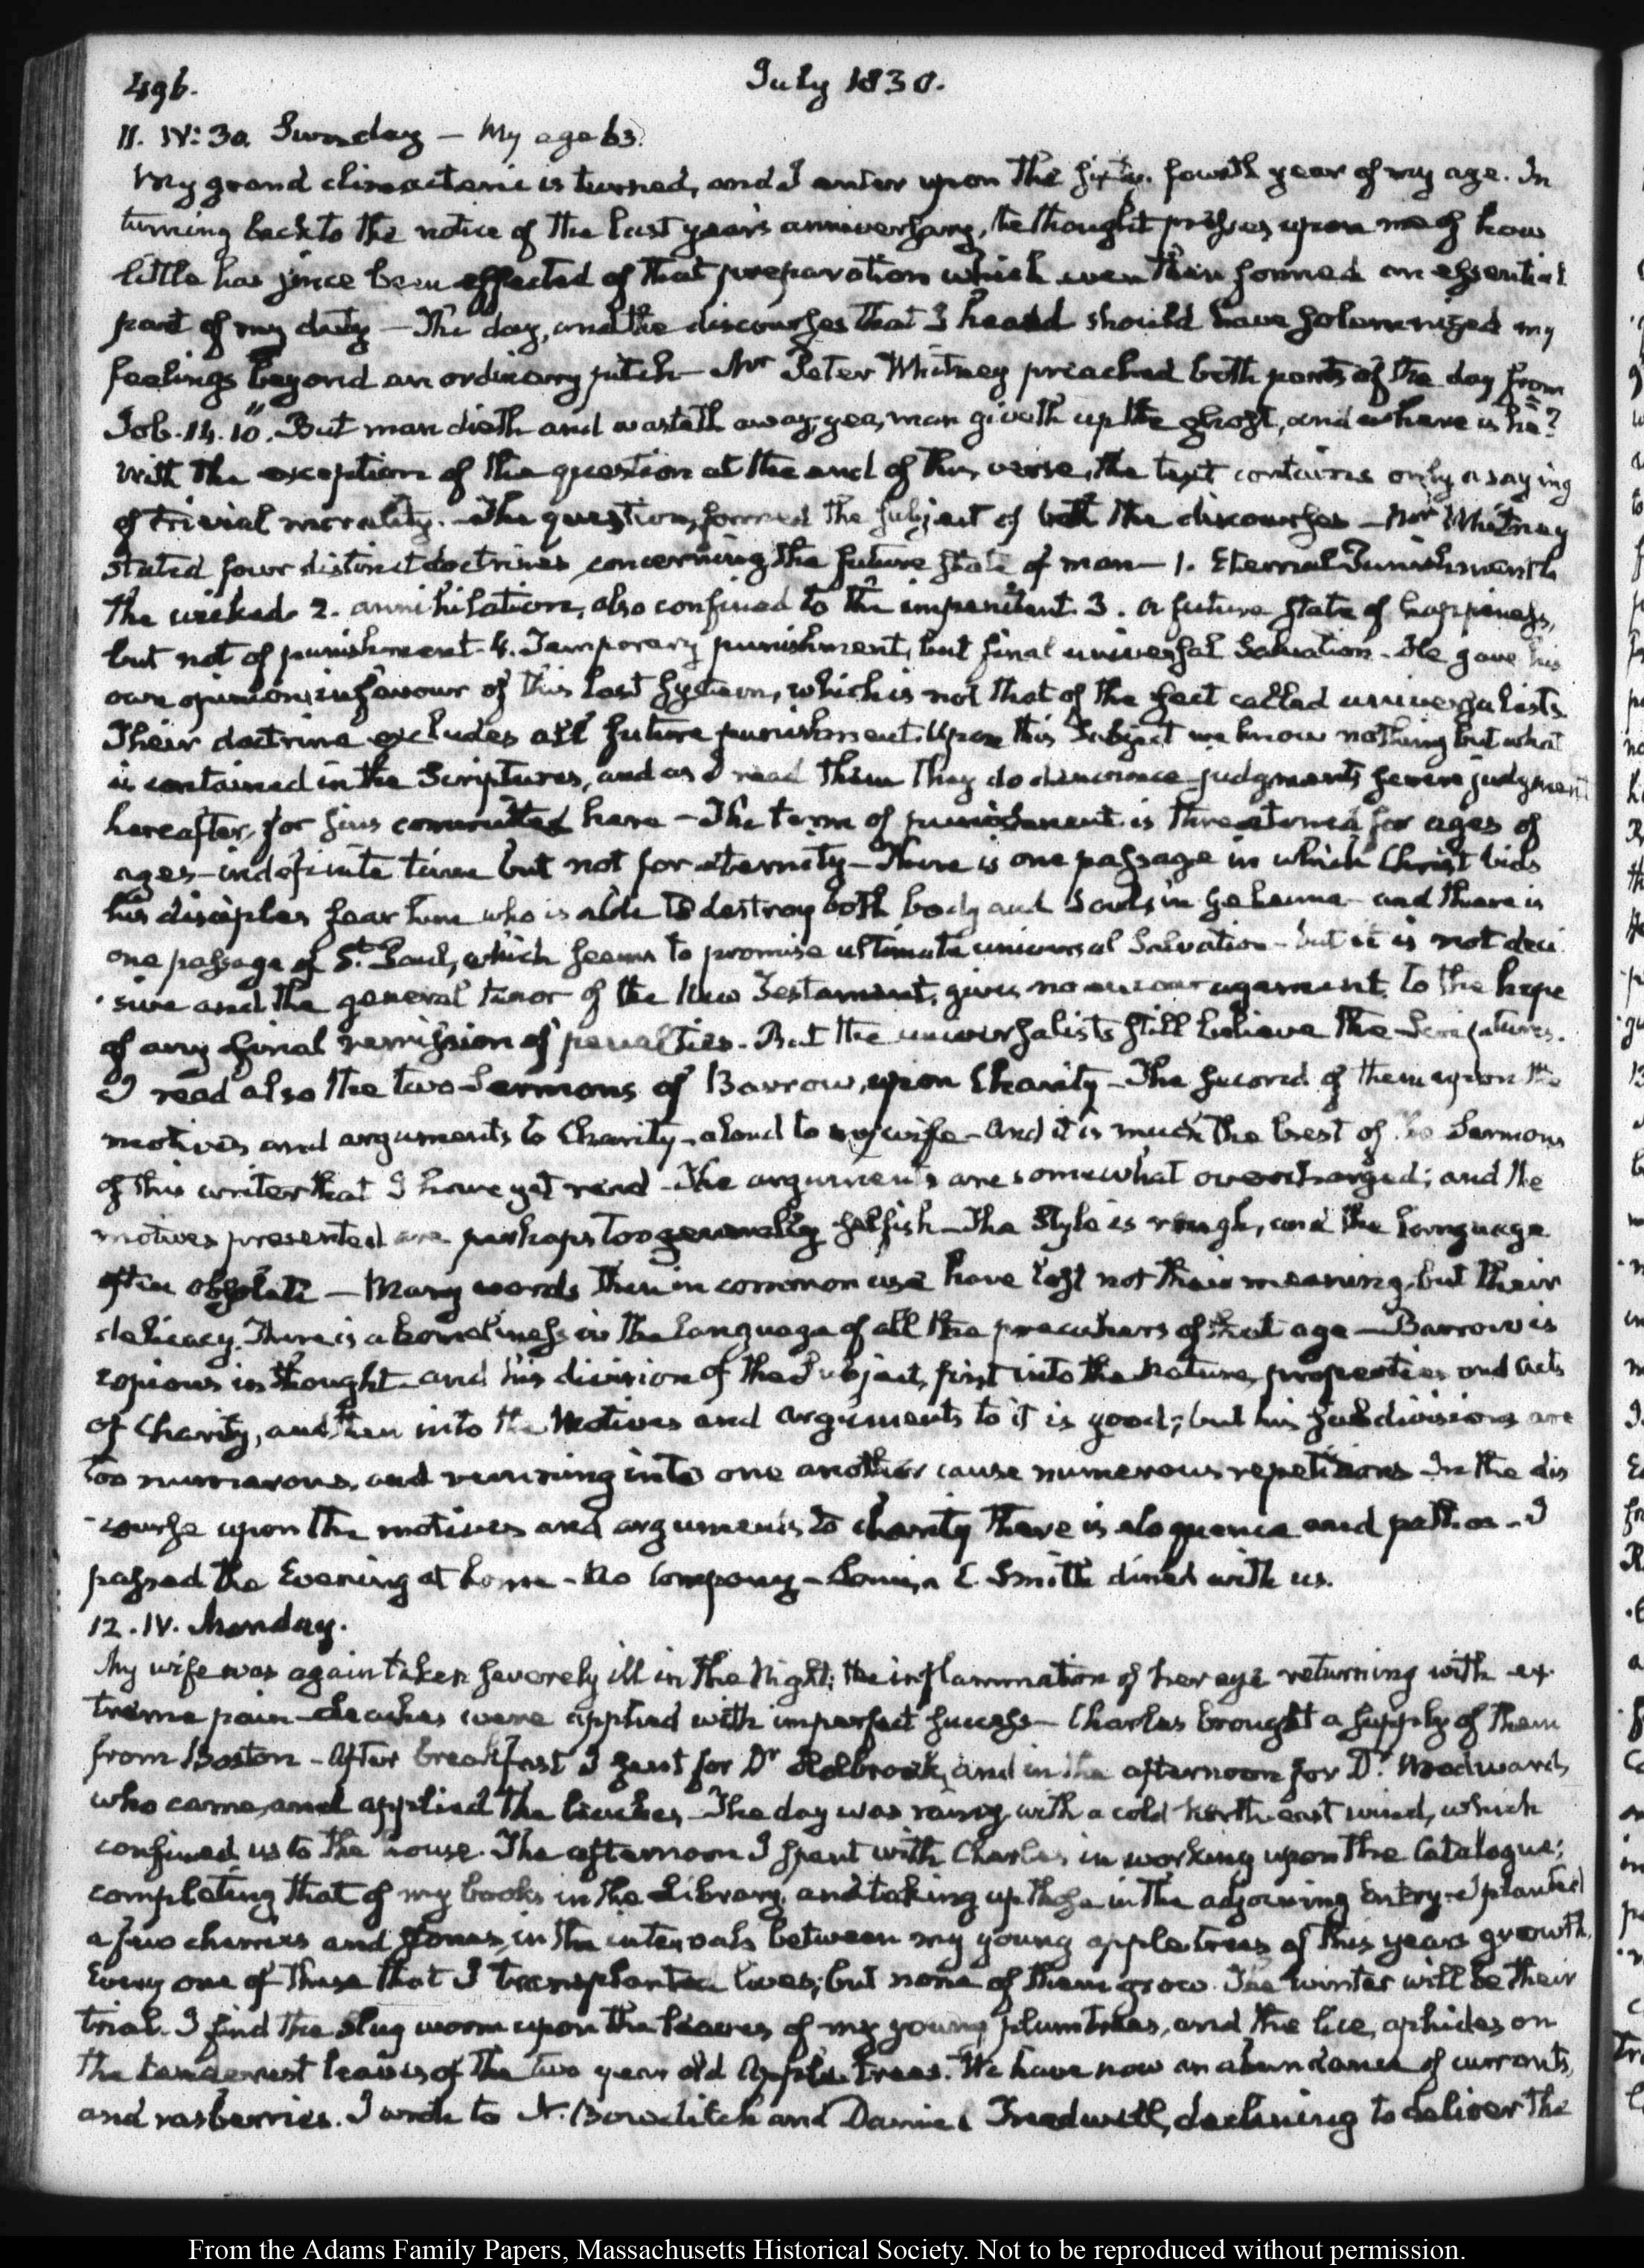 496.
July 1830.
11. IV:30. Sunday — My age 63.
My grand climacteric is turned, and I enter upon the sixty-fourth year of my age. In
turning back to the notice of the last year's anniversary, the thought presses upon me of how
little has since been effected of that preparation which even then formed an essential
part of my duty — The day, and the discourses that I heard should have solemnized my
feelings beyond an ordinary pitch — Mr Peter Whitney preached both parts of the day from
Job. 14. 10. "But man dieth and wasteth away; yea, man giveth up the ghost, and where is he?"
With the exception of the question at the end of this verse, the text contains only a saying
of trivial morality. — The question, formed the subject of both the discourses — Mr Whitney
stated four distinct doctrines concerning the future state of man — 1. Eternal Punishment to
the wicked. 2. annihilation, also confined to the impenitent. 3. a future state of happiness,
but not of punishment. 4. Temporary punishment, but final universal Salvation. He gave his
own opinion in favour of this last system, which is not that of the sect called universalists.
Their doctrine excludes all future punishment. Upon this subject we know nothing but what
is contained in the Scriptures, and as I read them they do denounce judgments severe judgment
hereafter, for sins committed here — The term of punishment is threatened for ages of
ages — indefinite time but not for eternity — There is one passage in which Christ bids
his disciples fear him who is able to destroy both body and Souls in gehenna — and there is
one passage of St. Paul, which seems to promise ultimate universal Salvation — but it is not deci
-sive and the general tenor of the New Testament, gives no encouragement to the hope
of any final remission of penalties. But the universalists still believe the Scriptures.
I read also the two Sermons of Barrow, upon Charity — The second of them upon the
motives and arguments to Charity — aloud to my wife — and it is much the best of the Sermons
of this writer that I have yet read — The arguments are somewhat overcharged; and the
motives presented are perhaps too generally selfish — The Style is rough, and the language
often obsolete — Many words then in common use have lost not their meaning, but their
delicacy. There is a homeliness in the language of all the preachers of that age — Barrow is
copious in thought and his division of the subject, first into the Nature, properties and acts
of Charity, and then into the Motives and arguments to it is good; but his subdivisions are
too numerous, and running into one another cause numerous repetitions. In the dis
-course upon the motives and arguments to charity there is eloquence and pathos — I
passed the Evening at home — No Company — Louisa C. Smith dined with us.
12. IV. Monday.
My wife was again taken severely ill in the Night; the inflammation of her eye returning with ex-
treme pain — Leaches were applied with imperfect success — Charles brought a supply of them
from Boston — After breakfast I sent for Dr Holbrook, and in the afternoon for Dr. Woodward,
who came, and applied the leaches — The day was rainy with a cold North-east wind, which
confined us to the house. The afternoon I spent with Charles in working upon the Catalogue;
completing that of my books in the Library, and taking up those in the adjoining Entry. I planted
a few cherries and stones, in the intervals between my young apple trees of this years growth.
Every one of those that I transplanted lives; but none of them grow. The winter will be their
trial. I find the slug worm upon the leaves of my young plum trees, and the lice, aphides on
the tenderest leaves of the two year old Apple trees. We have now an abundance of currants,
and rasberries. I wrote to N. Bowditch and Daniel Treadwell, declining to deliver the
From the Adams Family Papers, Massachusetts Historical Society. Not to be reproduced without permission.